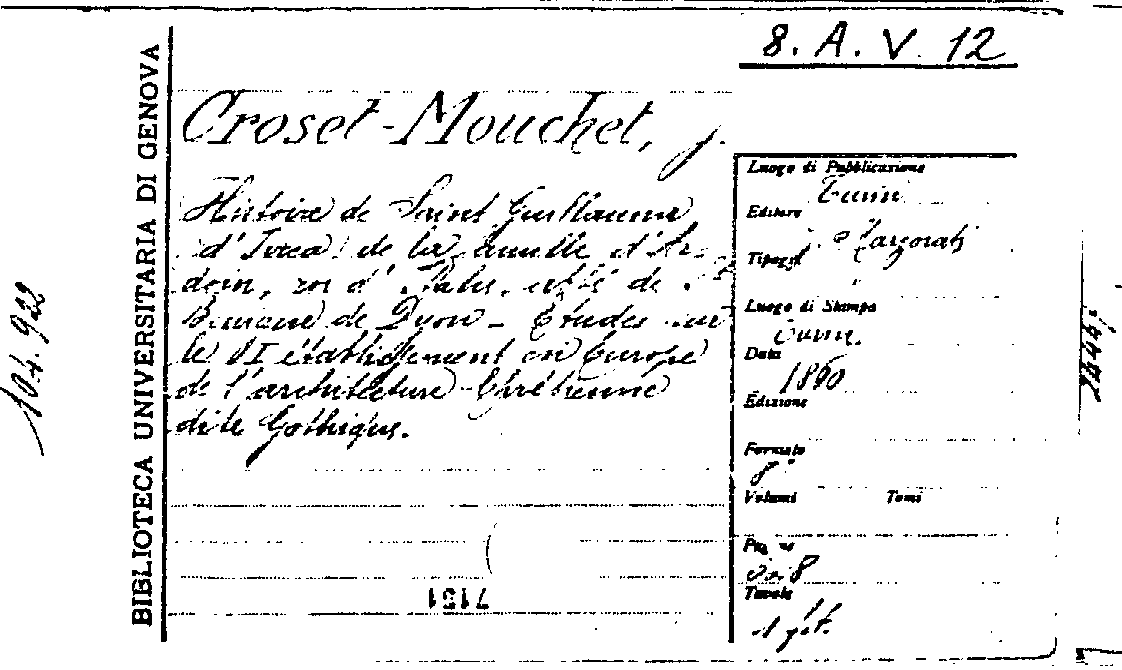 8. A. V. 12
BIBLIOTECA UNIVERSITARIA DI GENOVA
Croset-Mouchet, J.
Histoire de Saint Guillaume
d'Ivrea de la famille d'Ar-
doin, roi d'Italie, abbé de St
de Dijon - Etudes sur
le établissement en Europe
de l'architecture Chrétienne
dite Gothique.
Luogo di Pubblicazione
Turin
Editore
Tipogr.
Marzorati
Luogo di Stampa
Turin
Data
1860
Edizione
Formato
8°
Volumi Tomi
Pagine
Tavole
1
7151
104.922